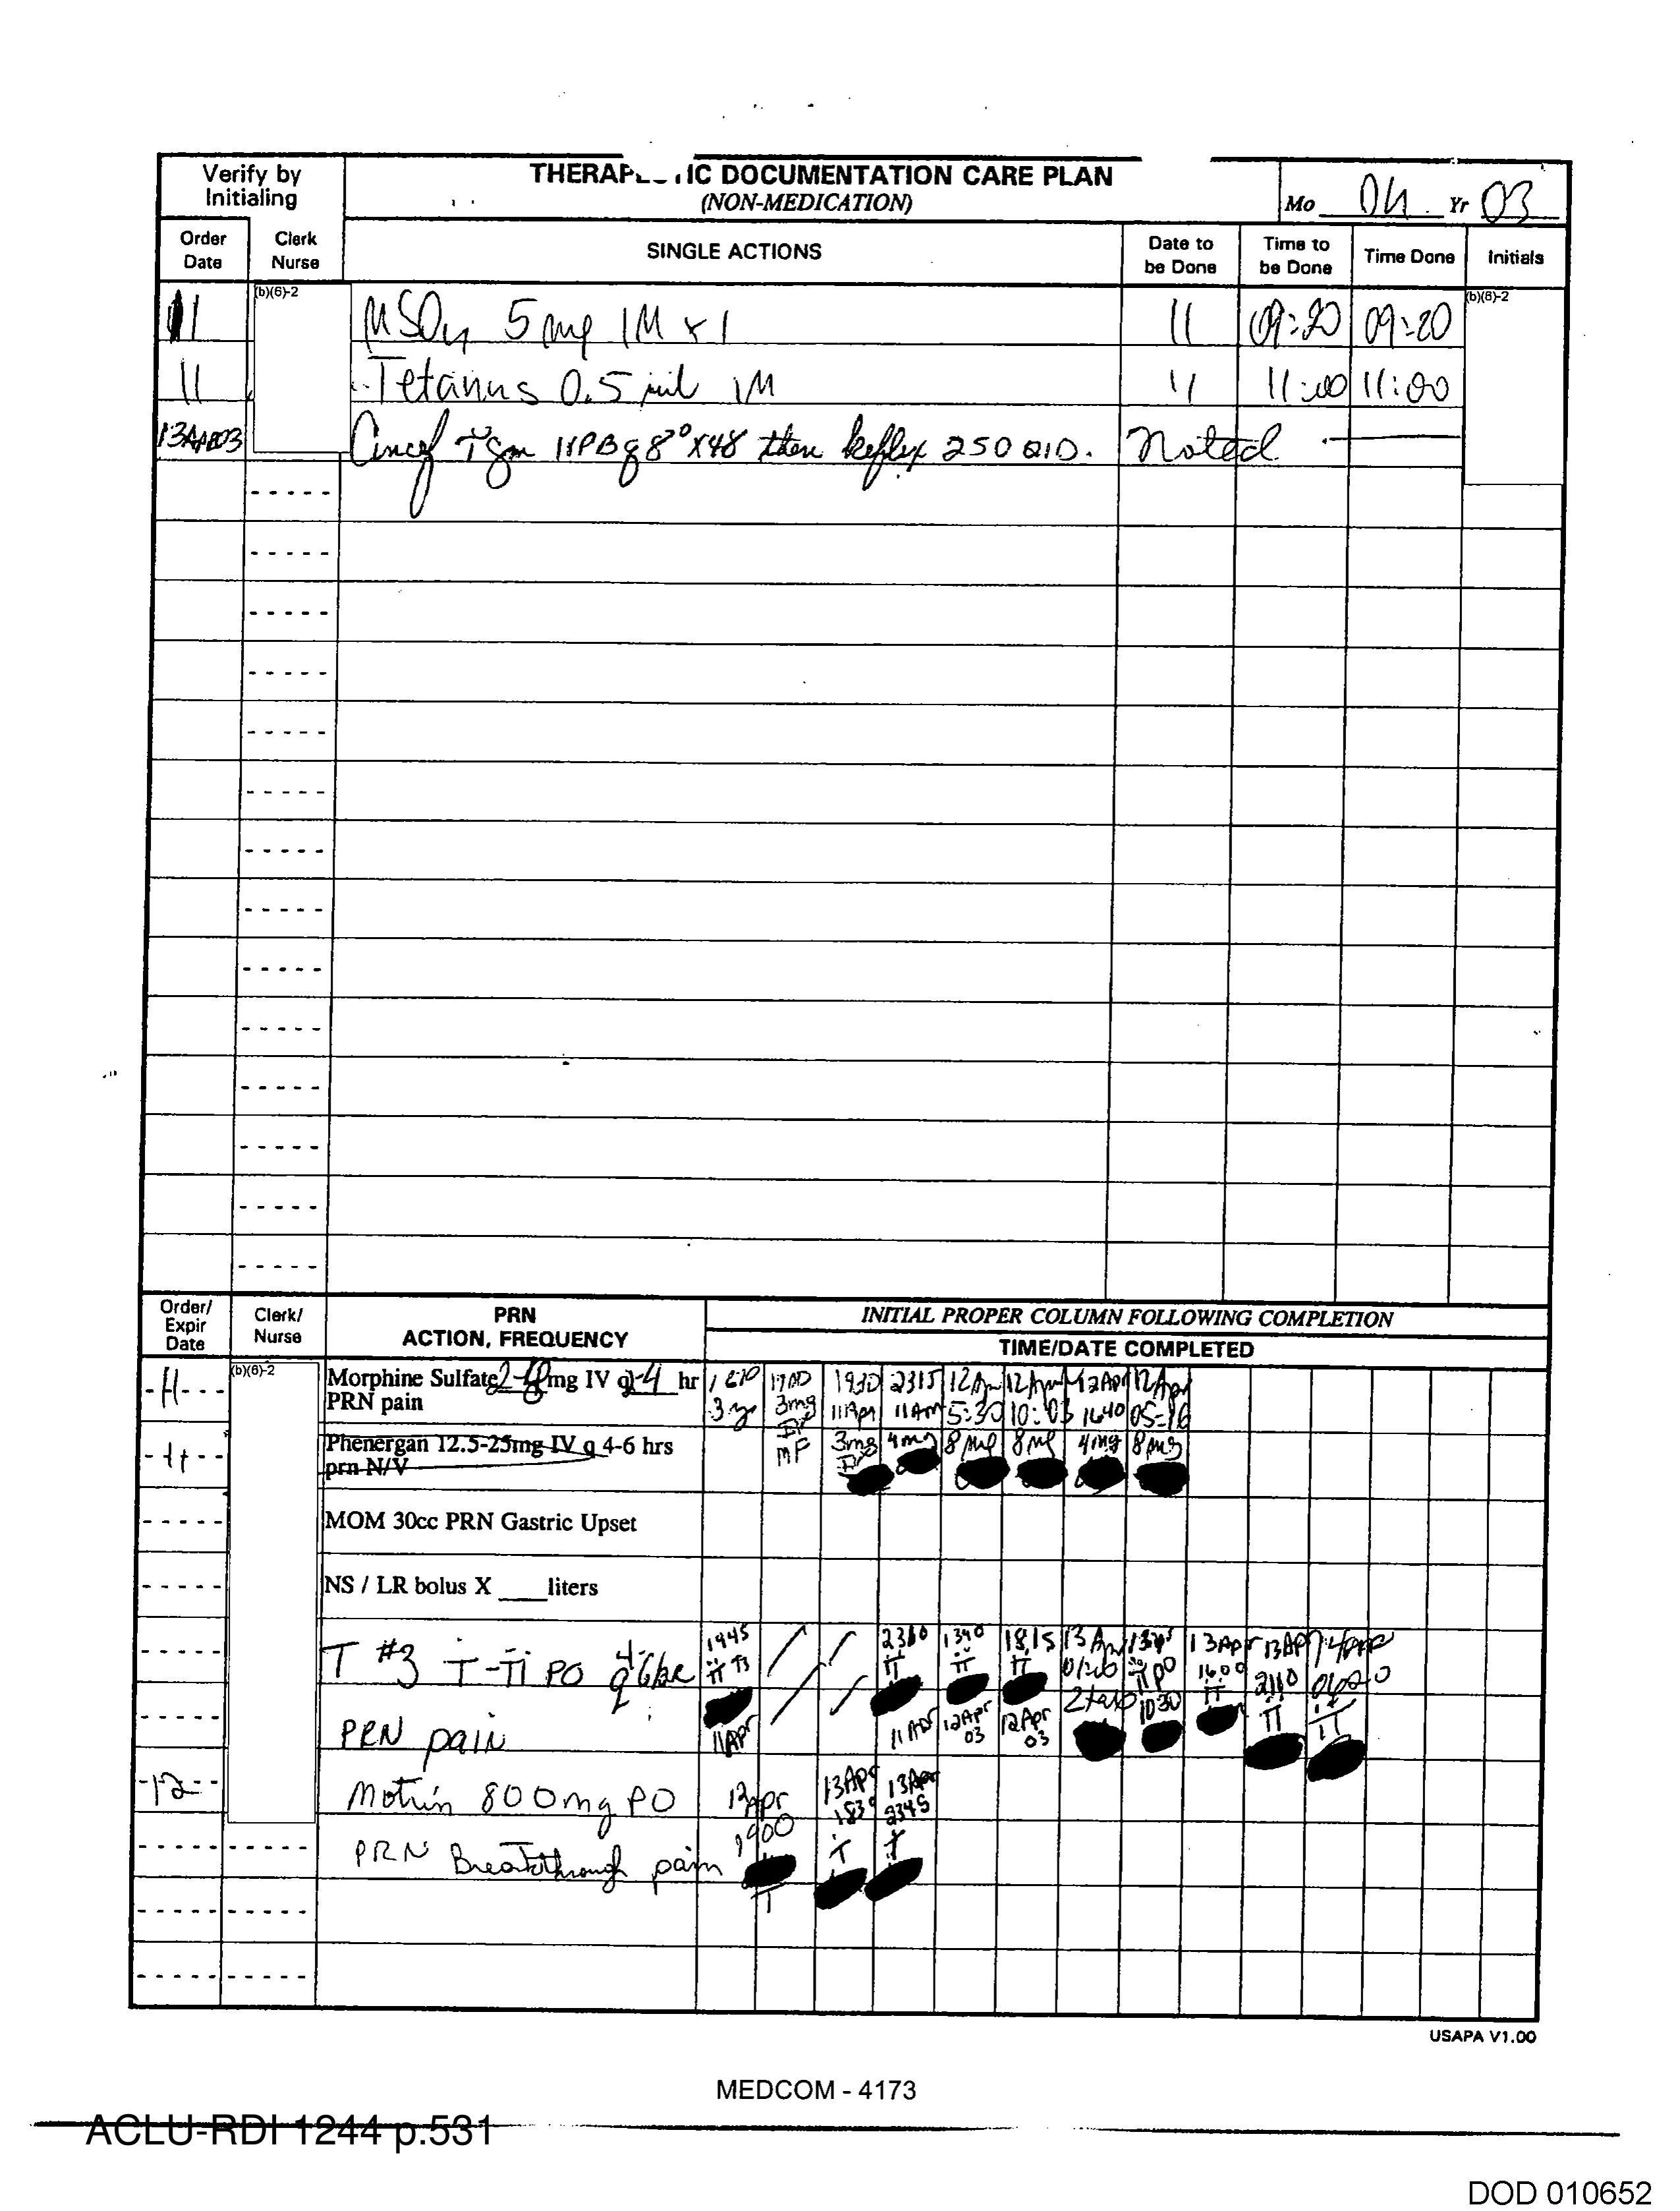 Verify by Initialing
THERAP IC DOCUMENTATION CARE PLAN
(NON-MEDICATION)
Mo 04 Yr 03
Order Date
Clerk Nurse
SINGLE ACTIONS
Date to be Done
Time to be Done
Time Done
Initials
(b)(6)-2
(b)(6)-2
11 MSO4 5 mg IM x 1 11 09:20 09:20
11 Tetanus 0.5 ml IM 11 11:00 11:00
13APR03 Ancef T gm IVPB q 8° X48 then keflex 250 QID. Noted
Order/ Expir Date
Clerk/ Nurse
PRN
ACTION, FREQUENCY
INITIAL PROPER COLUMN FOLLOWING COMPLETION
TIME/DATE COMPLETED
(b)(6)-2
11 Morphine Sulfate 2-8 mg IV q 2-4 hr
PRN pain
1930 2315 12Apr 12Apr 12Apr 12Apr
3mg 11Apr 11Apr 5:30 10:03 1640 05:16
MP 3mg 4mg 8mg 8mg 4mg 8mg
11 Phenergan 12.5-25mg IV q 4-6 hrs
prn N/V
MOM 30cc PRN Gastric Upset
NS / LR bolus X ___ liters
T #3 T-TT PO q 4-6hr
PRN pain
1945 TT T3 11Apr
2300 TT 11Apr
1340 TT 12Apr 03
1815 TT 12Apr 03
13Apr 2tabs
PO 1030
13Apr 1600 TT
13Apr 2110 TT
14Apr TT
12 Motrin 800mg PO
PRN Breakthrough pain
12Apr 1900 T
13Apr 1830 T
13Apr 2345 T
USAPA V1.00
MEDCOM - 4173
ACLU-RDI 1244 p.531
DOD 010652